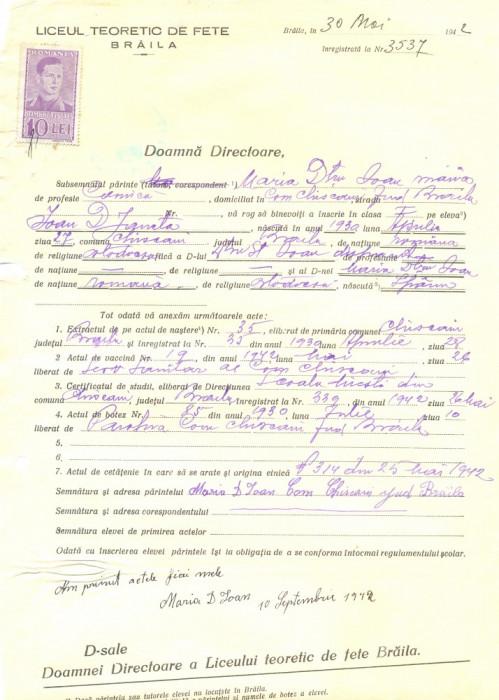 LICEUL TEORETIC DE FETE
BRĂILA
Brăila, în 30 Mai 1942
Inregistrată la Nr. 3537
ROMANIA
10 LEI
Doamnă Directoare,
Subsemnatul părinte (tutore, corespondent ¹) Maria Dtru Ioan mama
de profesie casnică, domiciliat în Com Chiscani Jud Braila
Ioan D. Nr. , vă rog să binevoiți a înscrie în clasa pe eleva²)
născută în anul 1930 luna Aprilie
ziua 27, comuna Chiscani județul Braila, de națiune romana
de religiune ortodocsa fiică a D-lui Dtru Ioan de profesie
de națiune — de religiune — și al D-nei Maria Dtru Ioan
de națiune romana, de religiune ortodocsa, născută³)
Tot odată vă anexăm următoarele acte:
1. Extractul de pe actul de naștere⁴) Nr. 35, eliberat de primăria comunei Chiscani
județul Braila și înregistrat la Nr. 35 din anul 1930 luna Aprilie, ziua 28
2 Actul de vaccină Nr. 19, din anul 1942 luna Mai, ziua 26
liberat de sanitar al Com Chiscani
3. Certificatul de studii, eliberat de Direcțiunea Scoala mixtă din
comuna Chiscani, județul Braila înregistrat la Nr. 339 din anul 1942 26 Mai
4. Actul de botez Nr. 25 din anul 1930, luna Iulie, ziua 10
liberat de Parohia Com Chiscani jud Braila
5.
6.
7. Actul de cetățenie în care să se arate și origina etnică 314 din 25 Mai 1942
Semnătura și adresa părintelui Maria D Ioan Com Chiscani jud Brăila
Semnătura și adresa corespondentului
Semnătura elevei de primirea actelor
Odată cu înscrierea elevei părintele își ia obligația de a se conforma întocmai regulamentului școlar.
Am primit actele ficei mele
Maria D. Ioan 10 Septembrie 1942
D-sale
Doamnei Directoare a Liceului teoretic de fete Brăila.
părintele sau tutorele elevei nu locuește în Brăila.
părintelui și numele de botez a elevei.